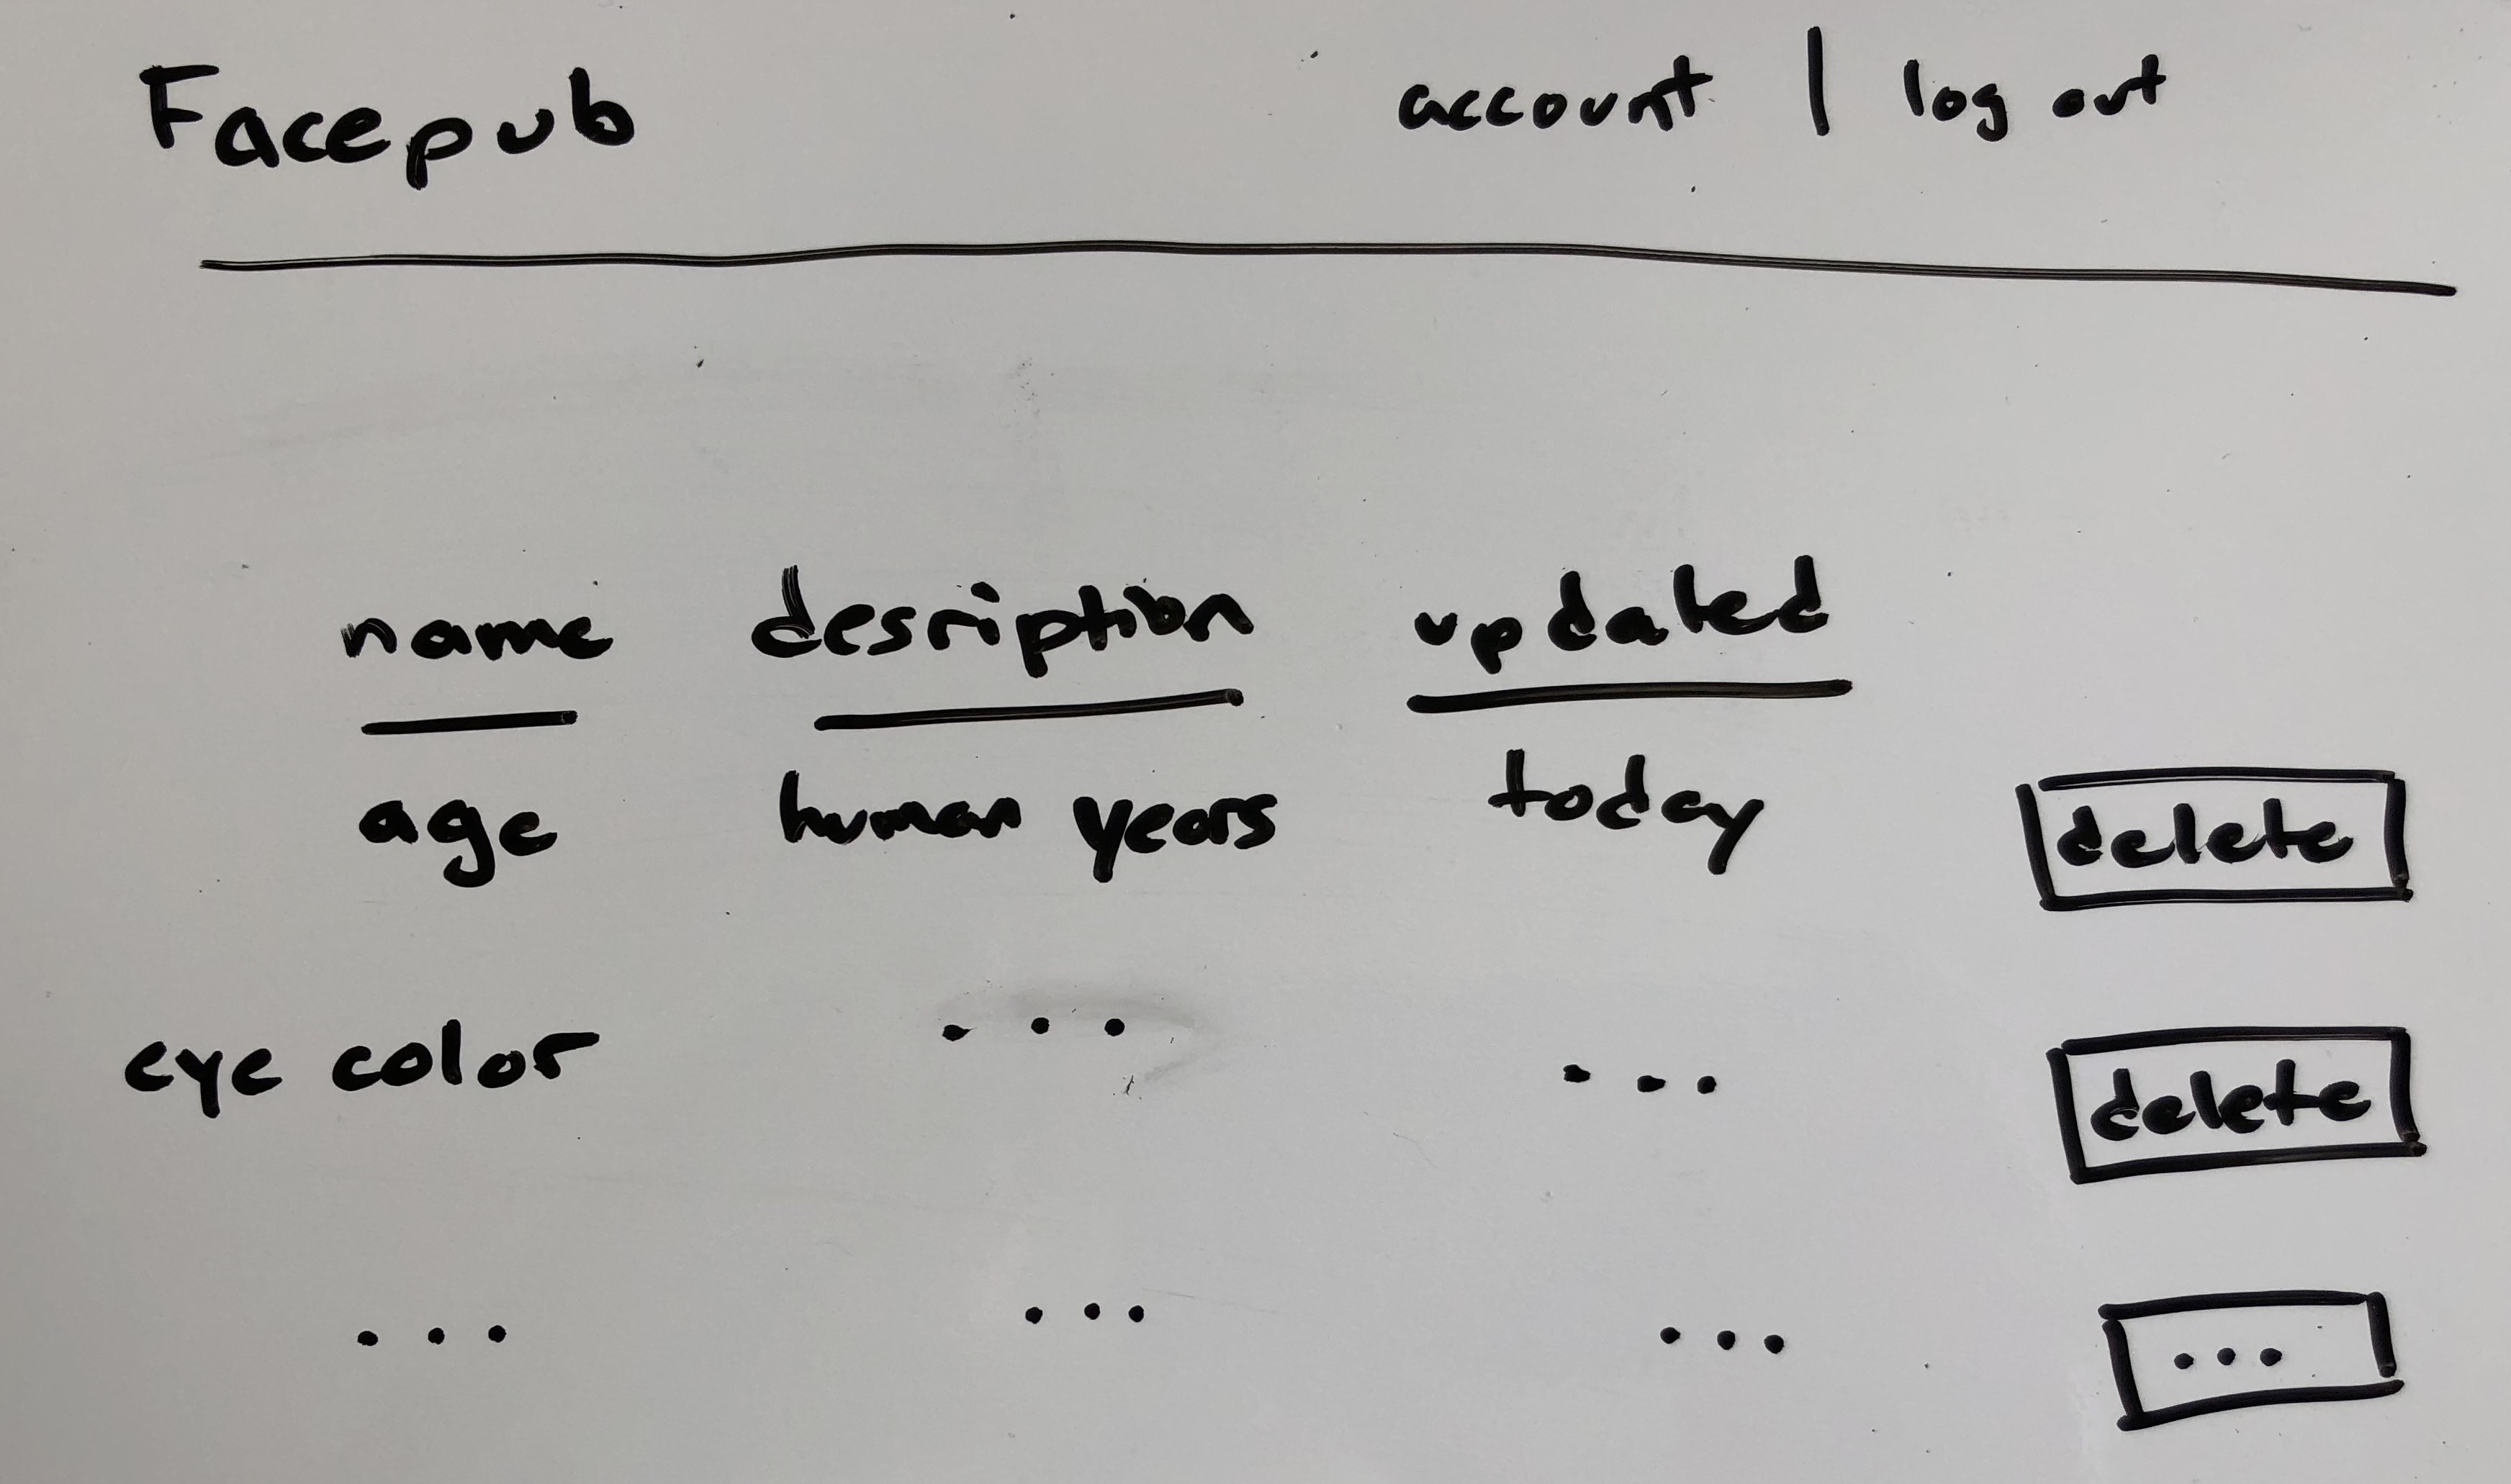 Facepub account | log out
name desription updated
age human years today delete
eye color ... ... delete
... ... ... ...